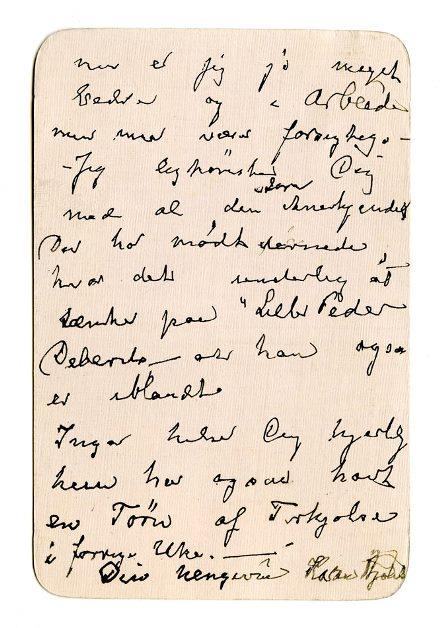 nu er jeg jo meget
bedre og i Arbeide
men maa være forsigtig. -
- Jeg lykønsker Dig
med al den Anerkjendelse som
Du har mødt dernede
hvor det underlig at
tænke paa "Lille Peder
og han ogsaa
er iblandt
Inga hilser Dig hjertelig
hun har ogsaa havt
en Törn af Forkjølelse
i forrige Uke. —
Din hengivne